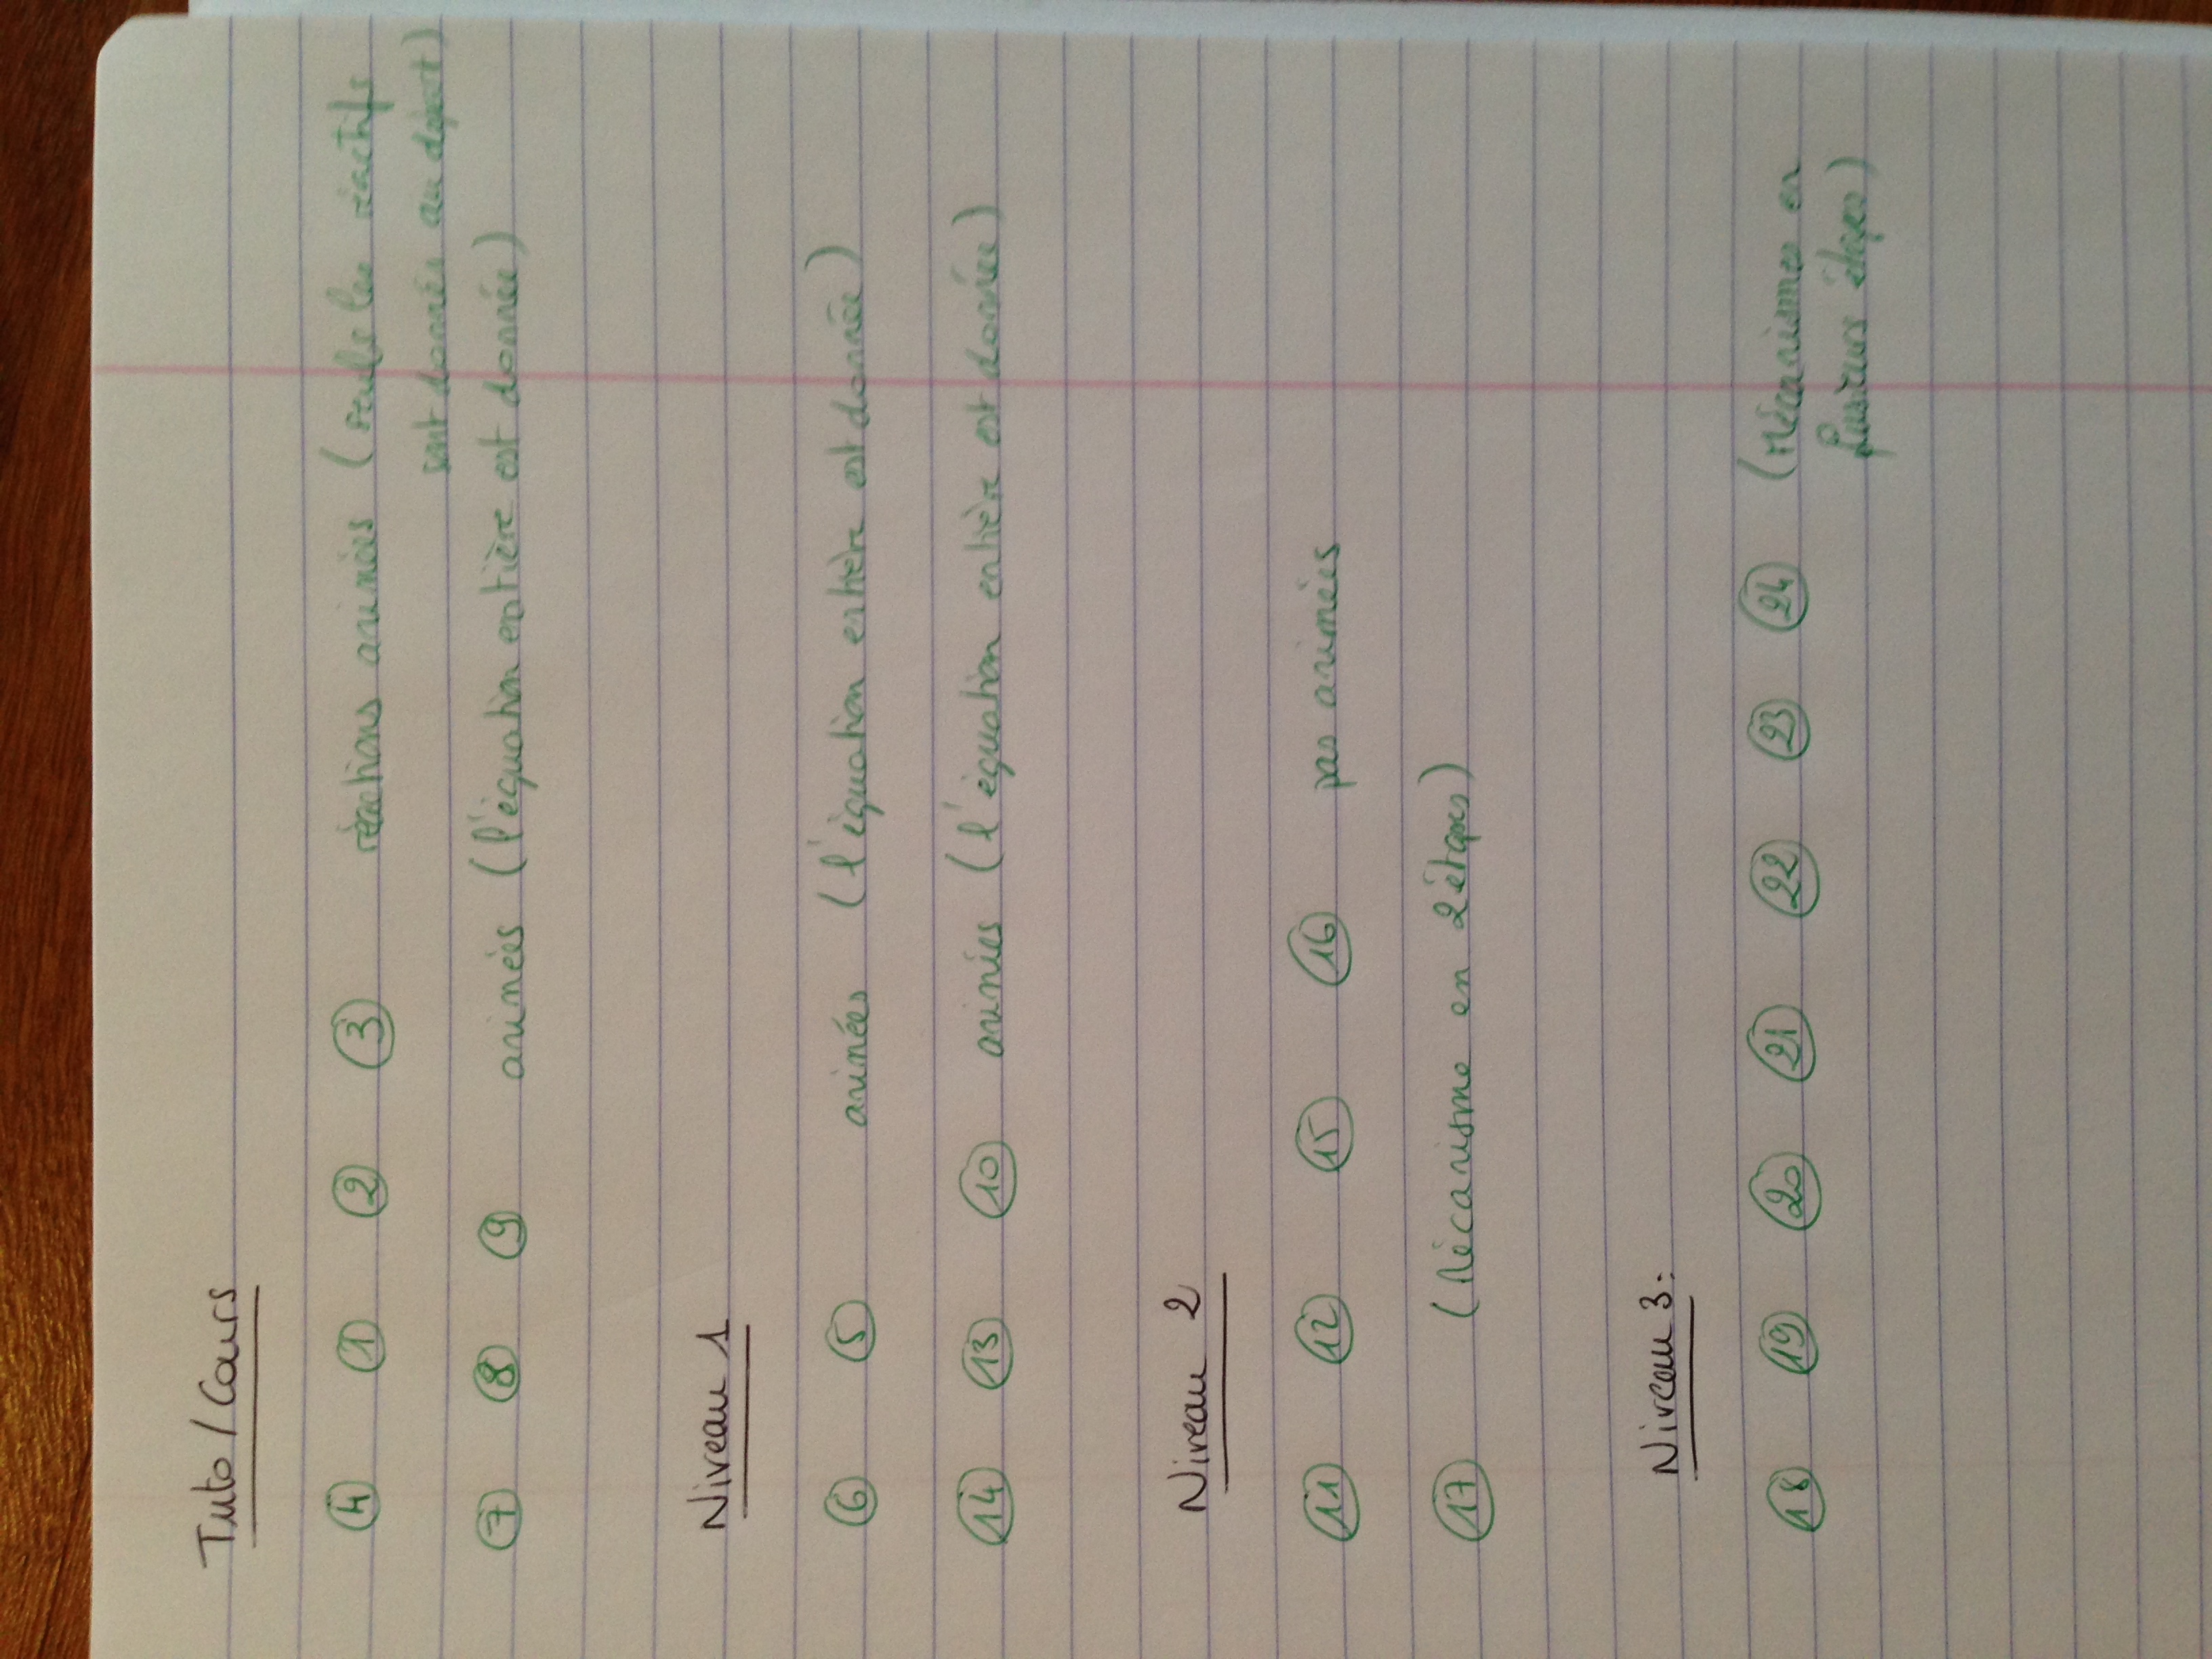 Tuto / Cours
④ ① ② ③ réactions animées (seuls les réactifs
sont donnés au départ)
⑦ ⑧ ⑨ animées (l'équation entière est donnée)
Niveau 1
⑥ ⑤ animées (l'équation entière est donnée)
⑭ ⑬ ⑩ animées (l'équation entière est donnée)
Niveau 2
⑪ ⑫ ⑮ ⑯ pas animées
⑰ (Mécanisme en 2 étapes)
Niveau 3:
⑱ ⑲ ⑳ ㉑ ㉒ ㉓ ㉔ (Mécanismes en
plusieurs étapes)